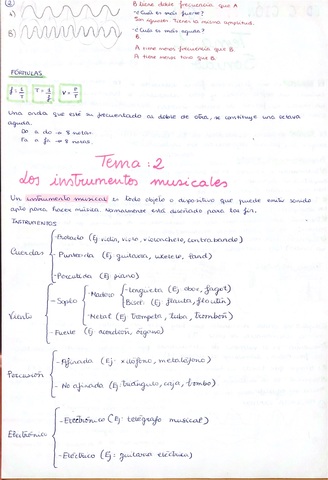 ②
B tiene doble frecuencia que A
A)
¿Cuál es más fuerte?
Son iguales. Tienen la misma amplitud.
B)
¿Cuál es más agudo?
B.
A tiene menor frecuencia que B.
A tiene menor tono que B.
FÓRMULAS
f = 1/T T = 1/f
Una onda que esté su frecuentada al doble de otra, se constituye una octava
aguda.
Do a do → 8 notas.
Fa a fa → 8 notas.
Tema: 2
Los instrumentos musicales
Un instrumento musical es todo objeto o dispositivo que puede emitir sonido
apto para hacer música. Normalmente está diseñado para tal fin.
INSTRUMENTOS
Cuerdas
- Frotado (Ej: violín, viola, violonchelo, contrabando)
- Punteada (Ej: guitarra, ukelele, laud)
- Percutida (Ej: piano)
Viento
- Soplo
- Madera
- Lengüeta (Ej: oboe, fagot)
- Bisel (Ej: flauta, flautín)
- Metal (Ej: trompeta, tuba, trombón)
- Fuelle (Ej: acordeón, órgano)
Percusión
- Afinada (Ej: xilófono, metalófono)
- No afinada (Ej: triángulo, caja, bombo)
Electrónica
- Electrónico (Ej: telégrafo musical)
- Eléctrico (Ej: guitarra eléctrica)